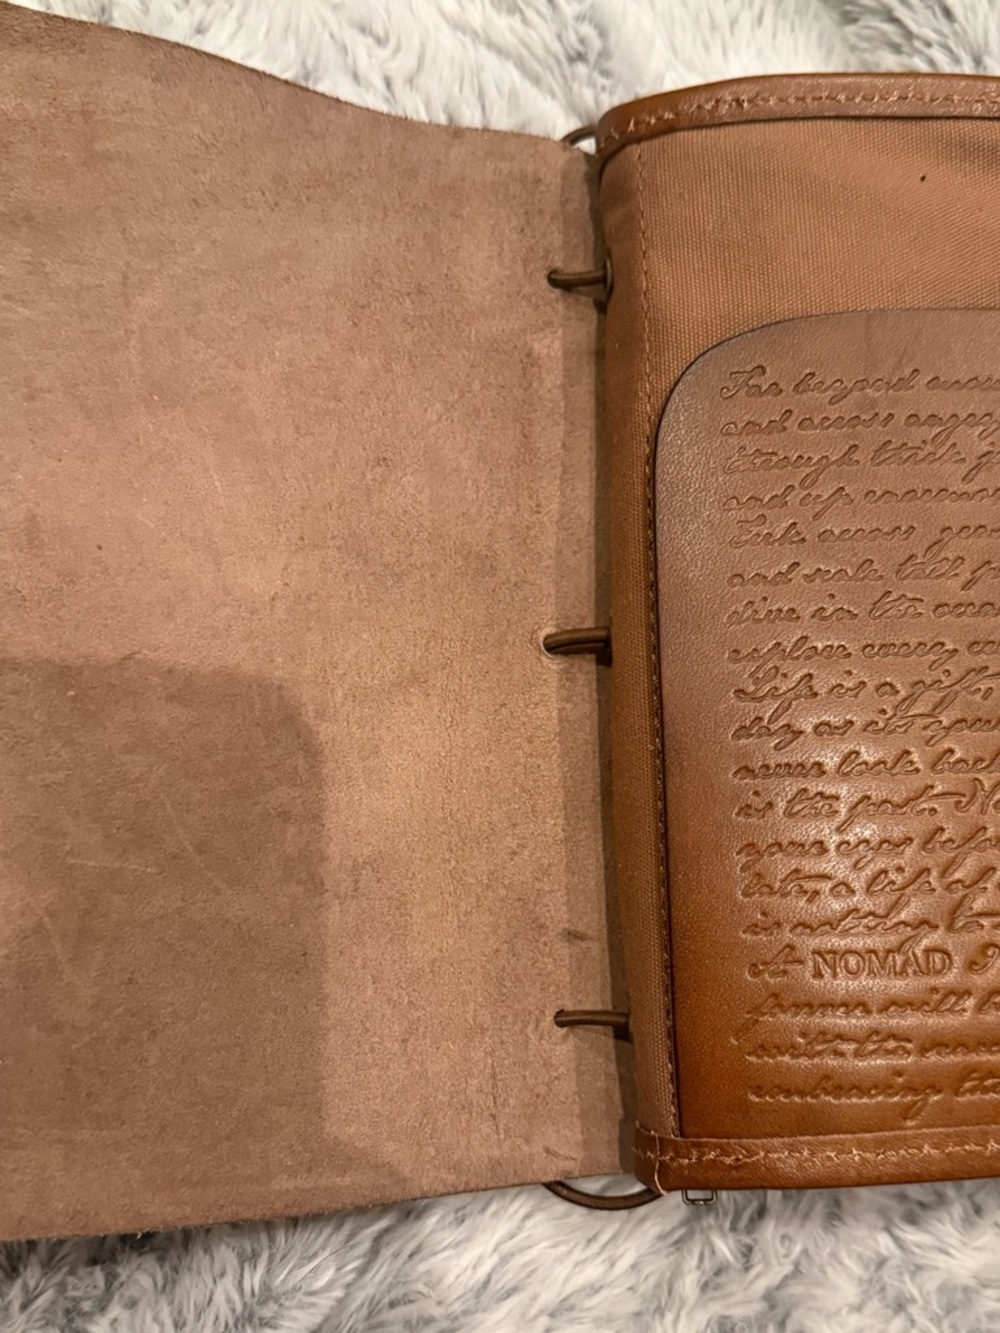 Far beyond
and across angry
through thick
and up
across
and scale tall
dive in the
explore every
Life is a gift,
day as it's your
never look back
is the past.
your eyes before
late, a life of
is nothing to
A NOMAD
forever will
with the
embracing the